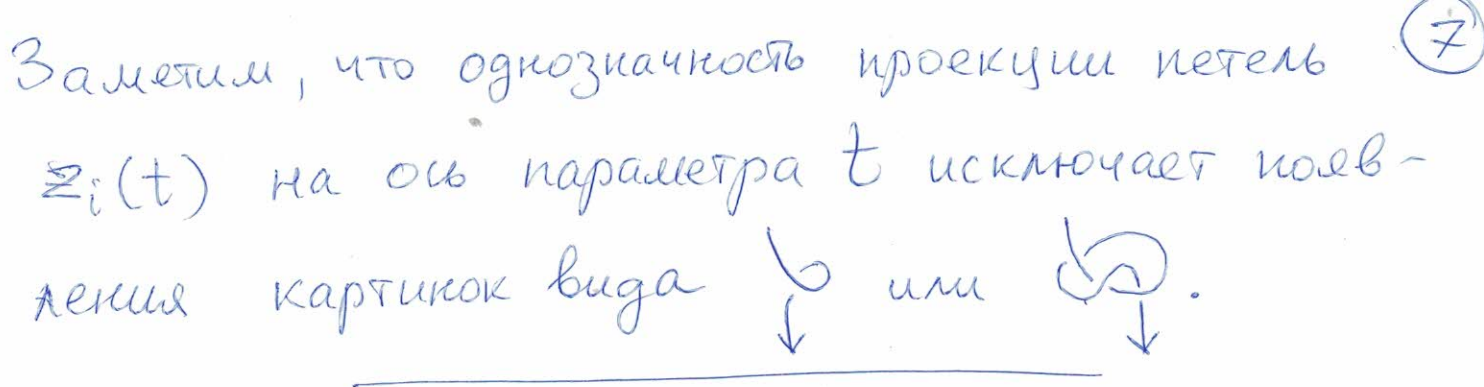 Заметим, что однозначность проекции петель 7
z_i(t) на ось параметра t исключает появ-
ления картинок вида или .